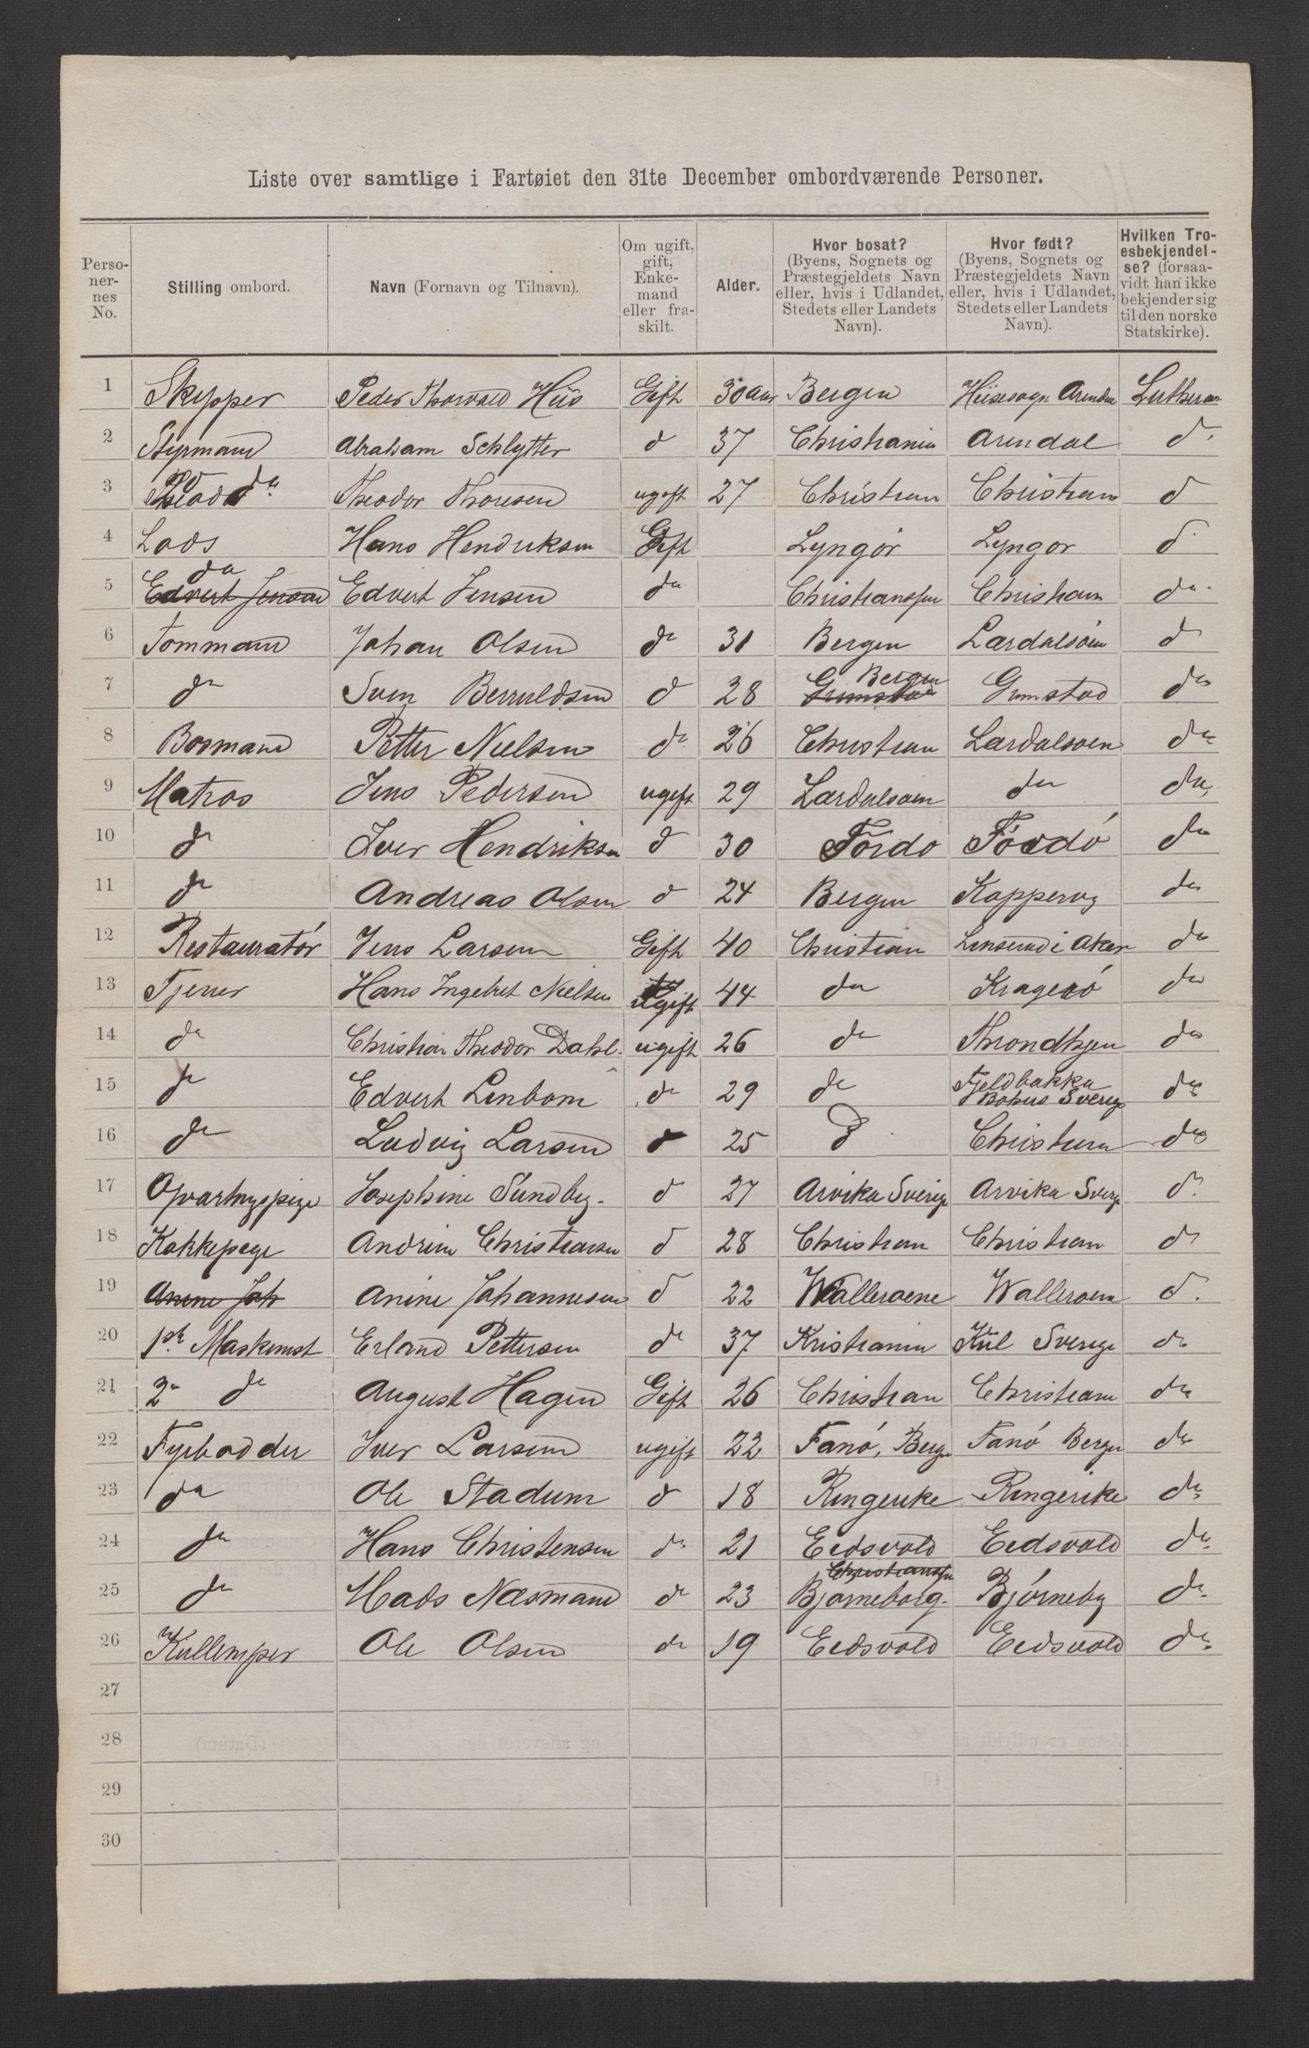 Liste over samtlige i Fartøiet den 31te December ombordværende Personer.
Perso-
ner-
nes
No.
Stilling ombord.
Navn (Fornavn og Tilnavn).
Om ugift,
gift,
Enke-
mand
eller fra-
skilt.
Alder.
Hvor bosat?
(Byens, Sognets og
Præstegjeldets Navn
eller, hvis i Udlandet,
Stedets eller Landets
Navn).
Hvor født?
(Byens, Sognets og
Præstegjeldets Navn
eller, hvis i Udlandet,
Stedets eller Landets
Navn).
Hvilken Tro-
esbekjendel-
se? (forsaa-
vidt han ikke
bekjender sig
til den norske
Statskirke).
1 Skypper Peder Thorvald Hiis Gift 30 aar Bergen Hiisesogn Arendal Lutheran
2 Styrmand Abraham Schlytter d 37 Christiania Arendal d
3 da Theodor Thoresen ugift 27 Christian Christian d
4 Lods Hans Hendriksen Gift Lyngør Lyngor d
5 da Edvert Jensen Edvert Jensen da Christianssun Christiann da
6 Tommand Johan Olsen da 31 Bergen Lardalsoen d
7 da Sven Berruldsen d 28 Bergen Grimstad Grimstad da
8 Bosmand Petter Nielsen da 26 Christian Lardalsoen da
9 Matros Jens Pedersen ugift 29 Lardalsoen da da
10 da Iver Hendriksen d 30 Fordo Fordó da
11 da Andreas Olsen d 24 Bergen Koppervig da
12 Restauratór Jens Larsen Gift 40 Christian i Aker da
13 Tjener Hans Ingebret Nielsen ugift 44 da Krageró da
14 da Christian Theodor Dahl. ugift 26 da Throndhjen da
15 da Edvert Linbom da 29 da Fjeldbakka Bohus Sverige da
16 da Ludvig Larsen d 25 d Christian da
17 Opvartnigspige Josephine Sundby. d 27 Arvika Sverige Arvika Sverige d
18 Kokkepege Andrine Christiansen d 28 Christian Christian d
19 Anine Joh Anine Johannesen d 22 Walleroene Walleroene d.
20 1ste Maskinist Erland Pettersen da 37 Kristiania Kil Sverige da
21 2n d August Hagen Gift 26 Christian Christiann da
22 Fyrbødder Iver Larsen ugift 22 Fanó, Berge Fanó Berge da
23 da Ole Stadum d 18 Ringerike Ringerike da
24 da Hans Christensen da 21 Eedsvold Eedsvold da
25 da Mads Næsmand da 23 Christianssn Bjørneborg. Bjørneby da
26 Kullemper Ole Olsen da 19 Eedsvold Eedsvold da
27
28
29
30